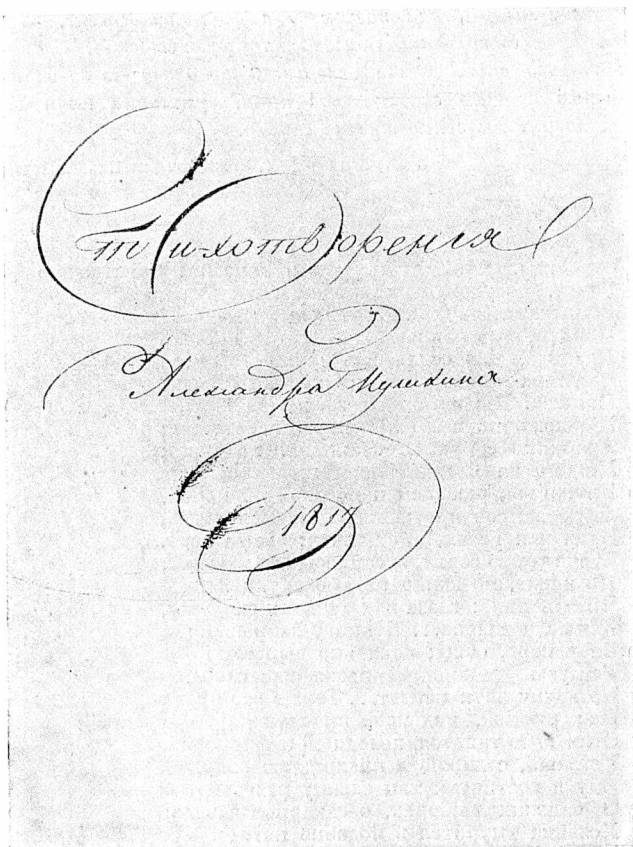 Стихотворения
Александра Пушкина
1817